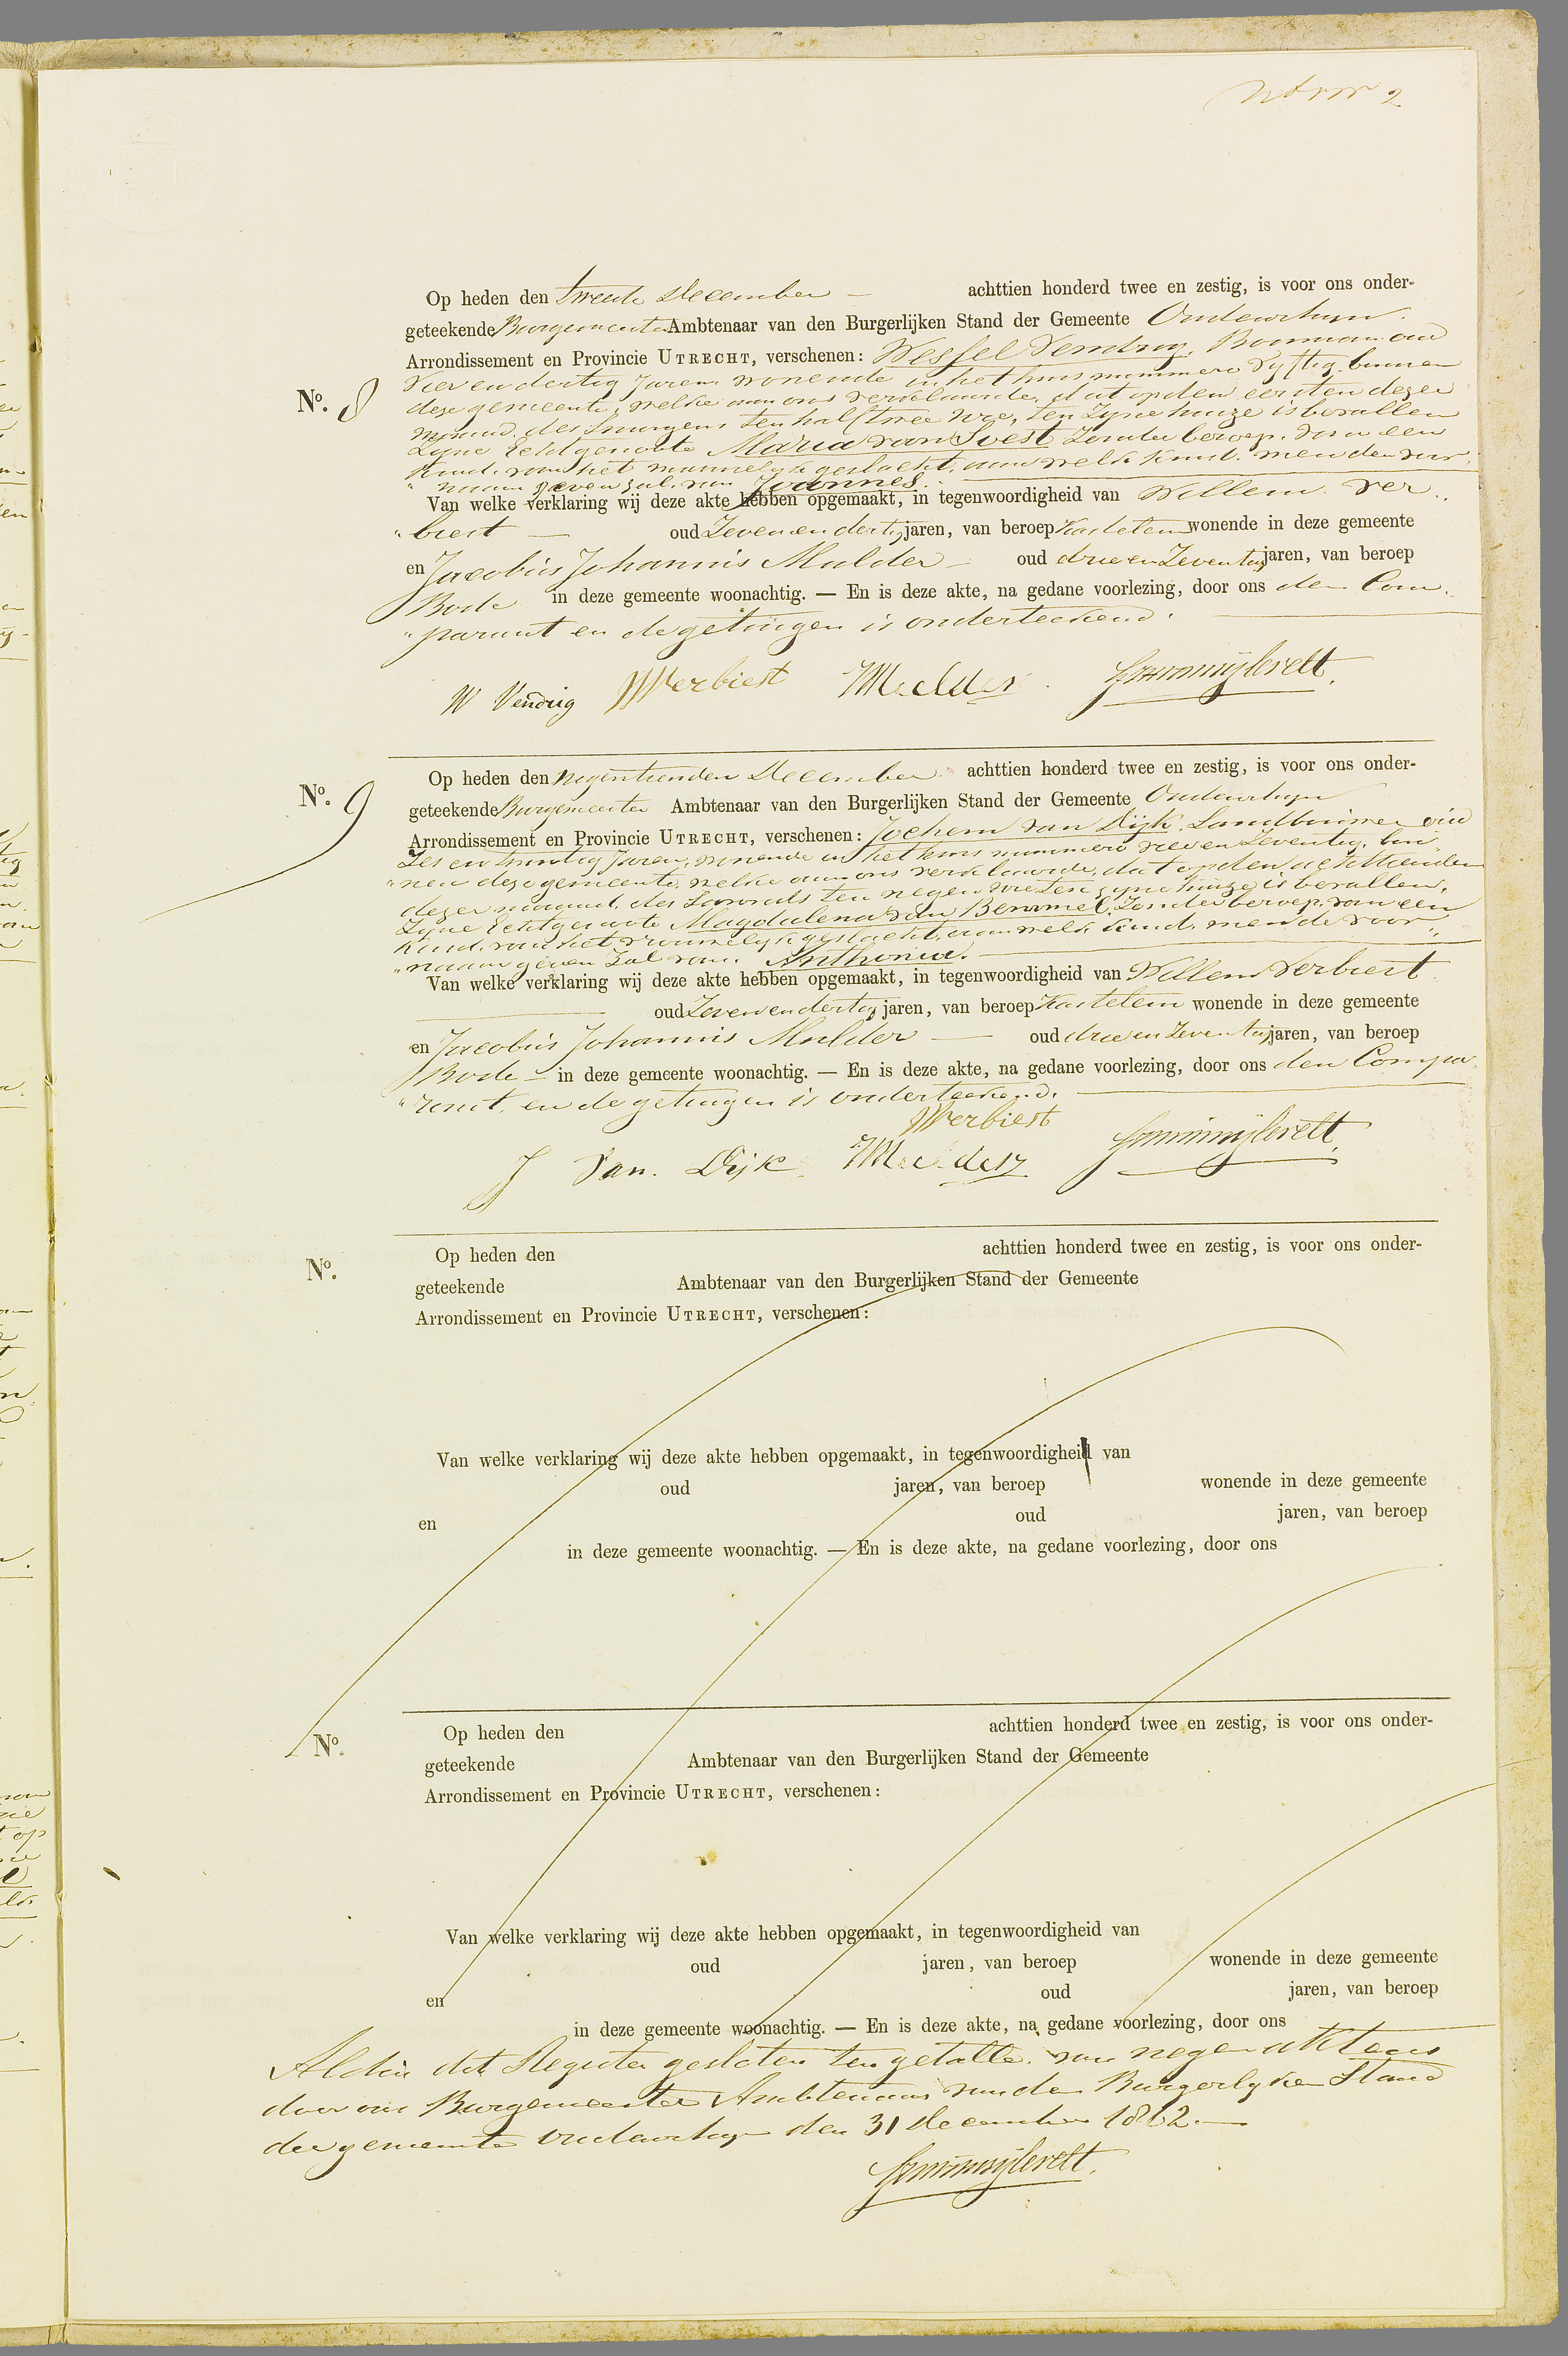 2
Op heden den tweede December — achttien honderd twee en zestig, is voor ons onder-
geteekende Burgemeester Ambtenaar van den Burgerlijken Stand der Gemeente Oudenrhyn
Arrondissement en Provincie UTRECHT, verschenen: Wessel Vendrig, Bouwman oud
No. 8
Vier en dertig Jaren wonende in het huis nummero Vyftig binnen
deze gemeente, welke aan ons verklaarde, dat op den eersten dezer
maand des smorgens ten half twee ure, ten zyne huize is bevallen
zyne Echtgenoote Maria van Soest Zonder beroep, van een
Kind van het mannelyk geslacht, aan welk Kind men den voor„
„naam geven zal van Joannes.
Van welke verklaring wij deze akte hebben opgemaakt, in tegenwoordigheid van Willem Ver„
„biest — oud Zeven en dertig jaren, van beroep Kastelein wonende in deze gemeente
en Jacobus Johannis Mulder — oud drie en Zeventig jaren, van beroep
Bode in deze gemeente woonachtig. — En is deze akte, na gedane voorlezing, door ons den Com„
„parant en de getuigen is onderteekend.
W Vendrig WVerbiest Mulder
No. 9
Op heden den negentienden December achttien honderd twee en zestig, is voor ons onder-
geteekende Burgemeester Ambtenaar van den Burgerlijken Stand der Gemeente Oudenrhyn
Arrondissement en Provincie UTRECHT, verschenen: Jochem van Dijk, Landbouwer oud
Zes en twintig Jaren, wonende in het huis nummero zeven Zeventig, bin„
„nen deze gemeente, welke aan ons verklaarde, dat op den achttienden
dezer maand des Savonds ten negen ure ten zyne huize is bevallen,
Zyne Echtgenoote Magdalena van Bemmel, Zonder beroep, van een
Kind van het vrouwelyk geslacht, aan welk Kind men de voor„
„naam geven Zal van Anthonia.
Van welke verklaring wij deze akte hebben opgemaakt, in tegenwoordigheid van Willem Verbiest
oud Zeven en dertig jaren, van beroep Kastelein wonende in deze gemeente
en Jacobus Johannis Mulder — oud drie en Zeventig jaren, van beroep
Bode — in deze gemeente woonachtig. — En is deze akte, na gedane voorlezing, door ons den Compa„
„rant en de getuigen is onderteekend.
WVerbiest
J Van. Dijk Mulder
No.
Op heden den achttien honderd twee en zestig, is voor ons onder-
geteekende Ambtenaar van den Burgerlijken Stand der Gemeente
Arrondissement en Provincie UTRECHT, verschenen:
Van welke verklaring wij deze akte hebben opgemaakt, in tegenwoordigheid van
oud jaren, van beroep wonende in deze gemeente
en oud jaren, van beroep
in deze gemeente woonachtig. — En is deze akte, na gedane voorlezing, door ons
No.
Op heden den achttien honderd twee en zestig, is voor ons onder-
geteekende Ambtenaar van den Burgerlijken Stand der Gemeente
Arrondissement en Provincie UTRECHT, verschenen:
Van welke verklaring wij deze akte hebben opgemaakt, in tegenwoordigheid van
oud jaren, van beroep wonende in deze gemeente
en oud jaren, van beroep
in deze gemeente woonachtig. — En is deze akte, na gedane voorlezing, door ons
Aldus dit Register gesloten ten getalle van negen akten
door ons Burgemeester Ambtenaar van den Burgerlyken Stand
der gemeente Oudenrhyn den 31 December 1862.—